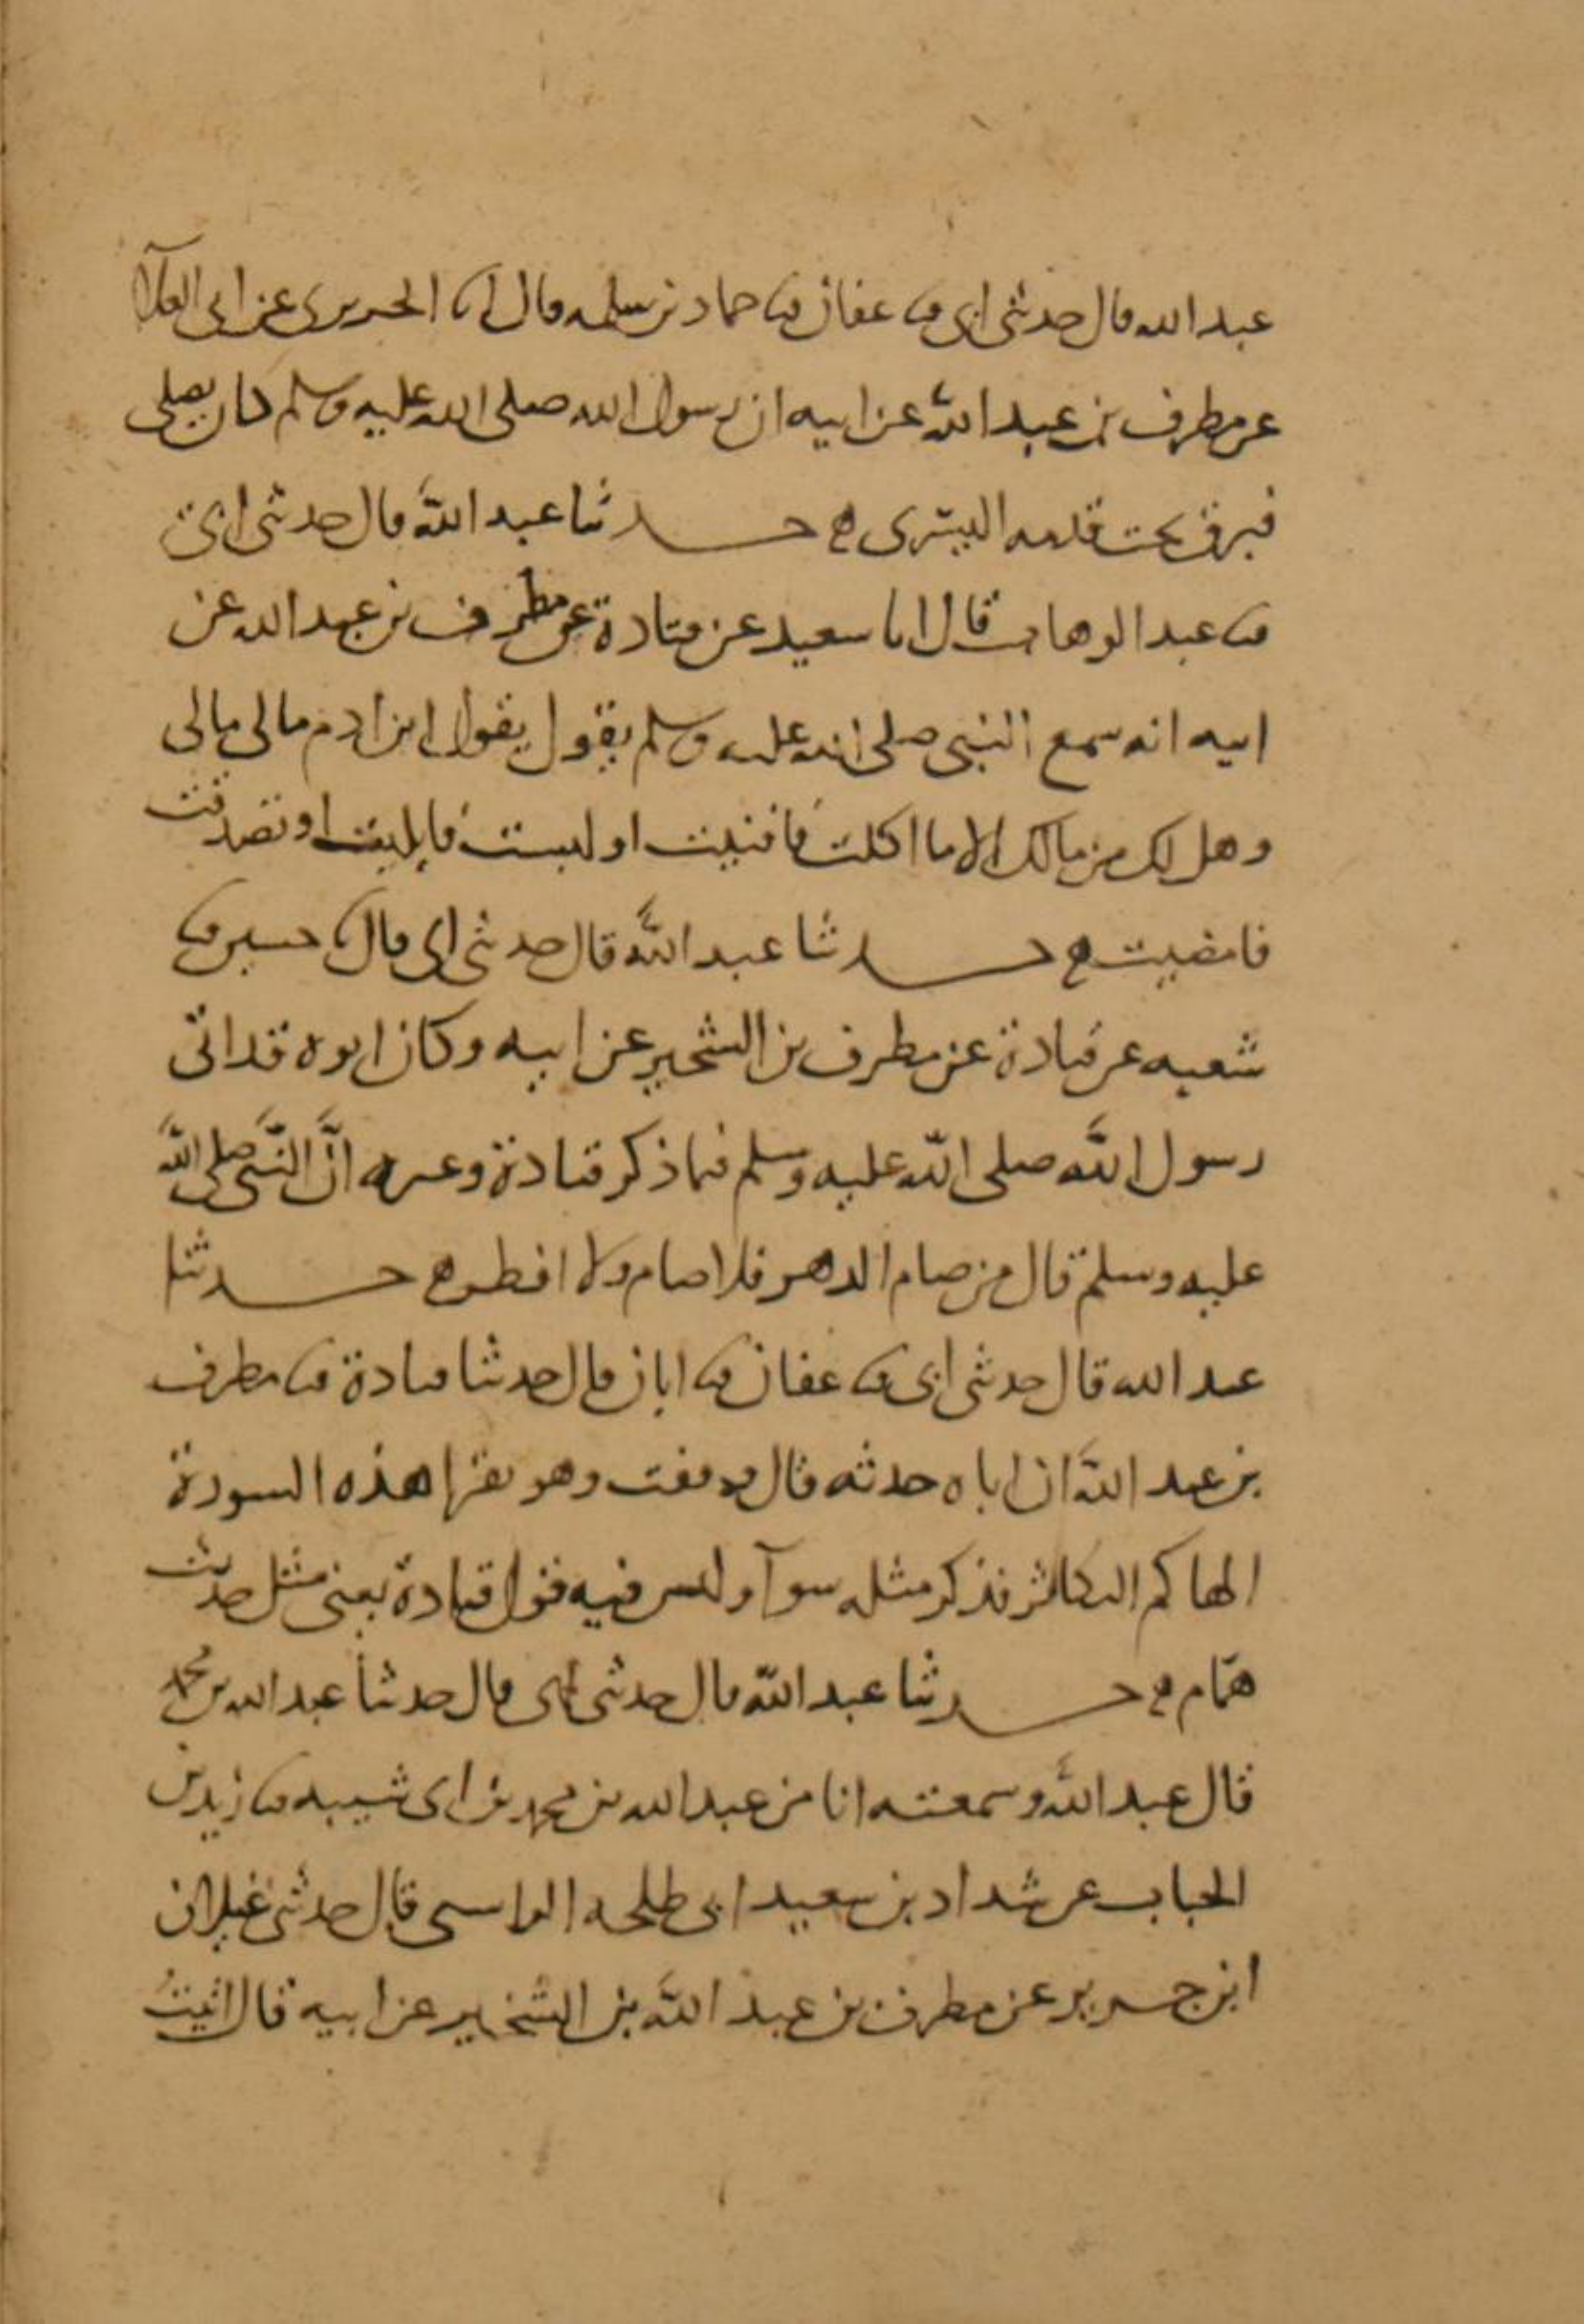 عبد الله قال حدثني ابي ثنا عفان ثنا حماد بن سلمه قال انا الجريري عن ابي العلآ
عن مطرف بن عبد الله عن ابيه ان رسول الله صلى الله عليه وسلم كان يصلي
فبزق تحت قدمه اليسرى ه حدثنا عبد الله قال حدثني ابي
ثنا عبد الوهاب قال انا سعيد عن قتادة عن مطرف بن عبد الله عن
ابيه انه سمع النبي صلى الله عليه وسلم يقول يقول ابن ادم مالي مالي
وهل لك من مالك الا ما اكلت فافنيت او لبست فابليت او تصدقت
فامضيت ه حدثنا عبد الله قال حدثني ابي قال ثنا حسين ثنا
شعبه عن قتادة عن مطرف بن الشخير عن ابيه وكان ابوه قد اتى
رسول الله صلى الله عليه وسلم فيما ذكر قتادة وغيره انَّ النَّبي صلى الله
عليه وسلم قال من صام الدهر فلا صام ولا افطر ه حدثنا
عبد الله قال حدثني ابي ثنا عفان ثنا ابان قال حدثنا قتادة ثنا مطرف
بن عبد الله ان اباه حدثه قال دفعت وهو يقرا هذه السورة
الهاكم التكاثر فذكر مثله سوآ وليس فيه قول قتادة يعني مثل حديث
همّام ه حدثنا عبد الله قال حدثني ابي قال حدثنا عبد الله بن محمد
قال عبد الله وسمعته انا من عبد الله بن محمد بن ابي شيبه ثنا زيد بن
الحباب عن شداد بن سعيد ابي طلحه الراسبي قال حدثني غيلان
ابن جرير عن مطرف بن عبد الله بن الشخير عن ابيه قال اتيت